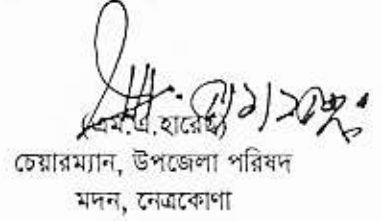 (এম.এ.হারেছ)
চেয়ারম্যান, উপজেলা পরিষদ
মদন, নেত্রকোণা